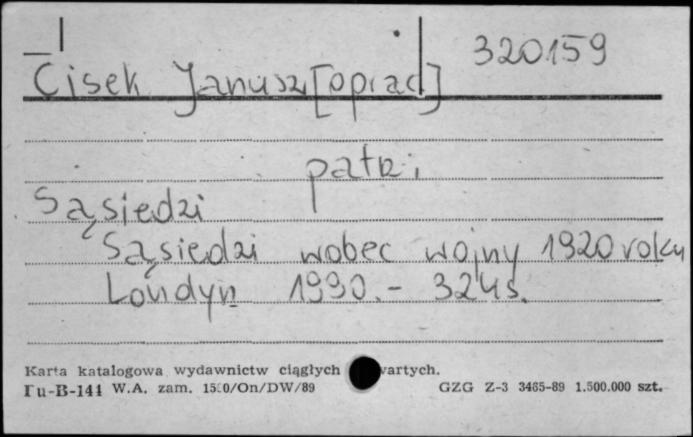 320159
Cisek Janusz [oprac]
patrz:
Sąsiedzi
Sąsiedzi wobec wojny 1920 roku
Londyn 1990.- 324 s.
Karta katalogowa wydawnictw ciągłych wartych.
Pu-B-144 W.A. zam. /On/DW/89 GZG Z-3 3465-89 1.500.000 szt.